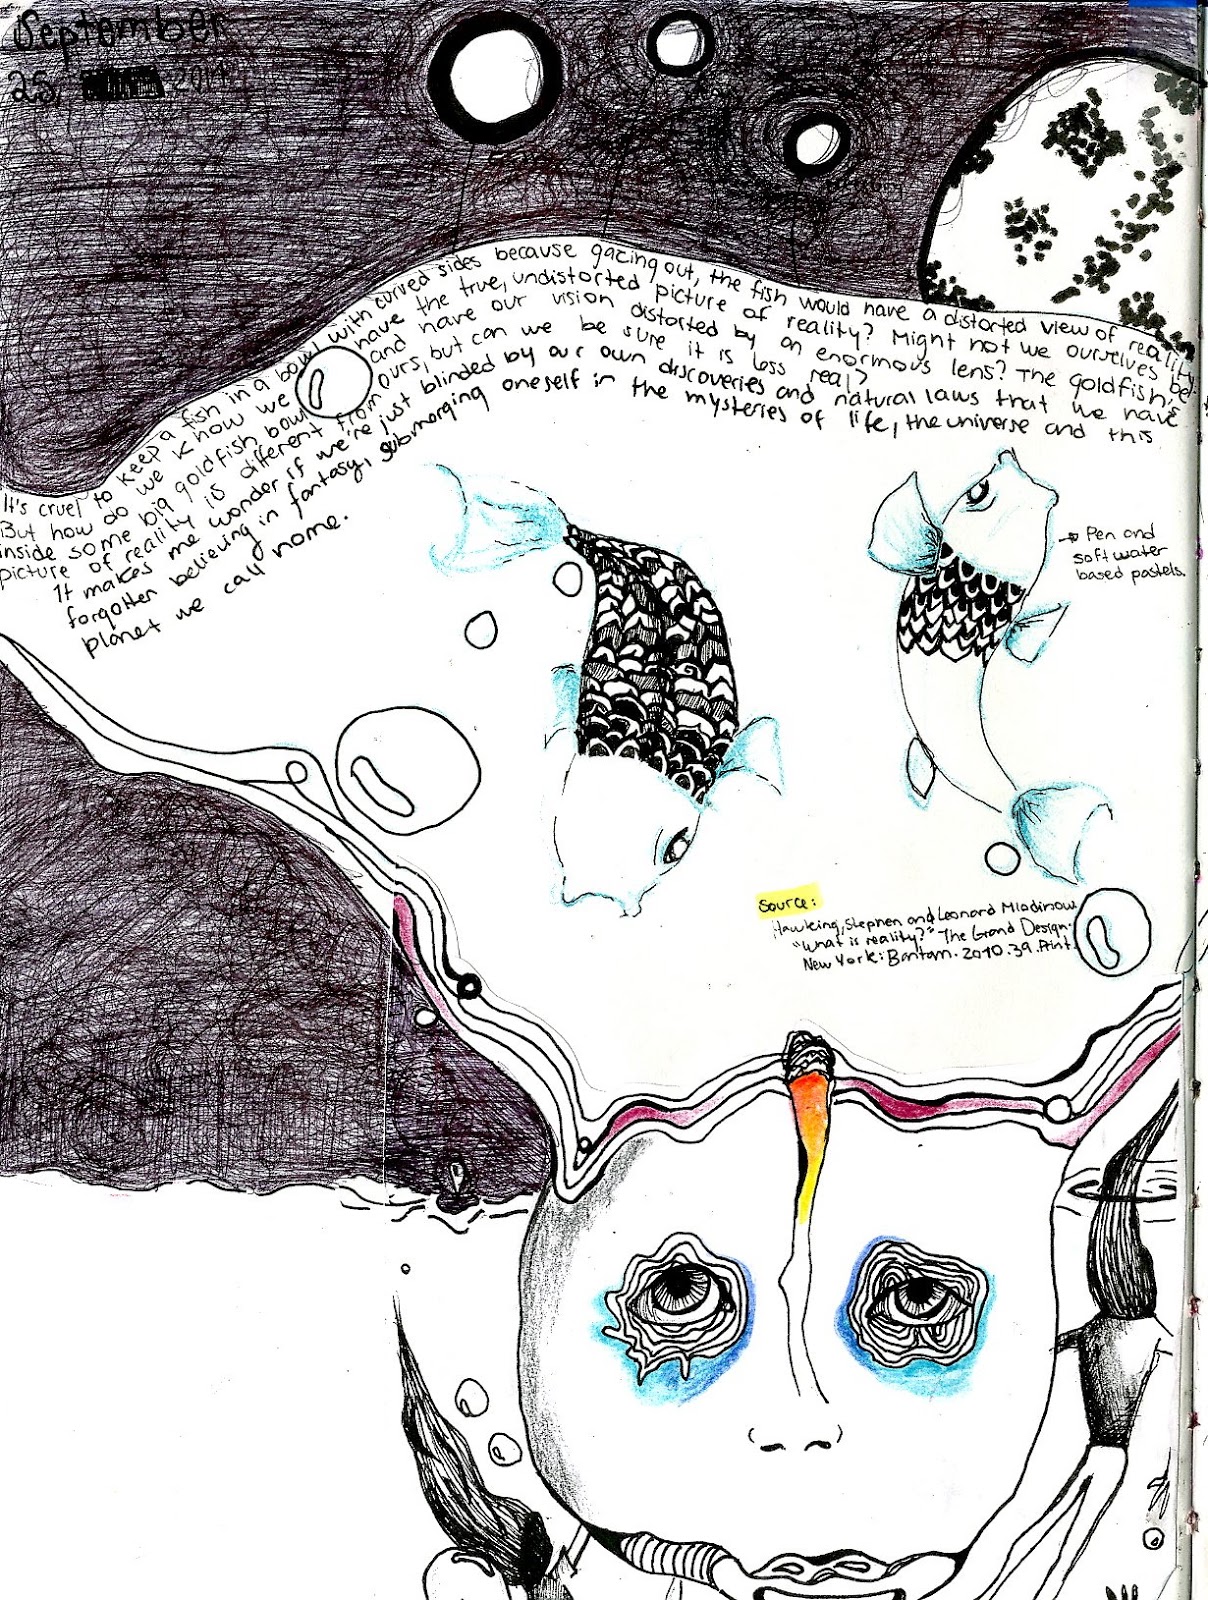 September
25, 2014
It's cruel to keep a fish in a bowl with curved sides because gazing out, the fish would have a distorted view of reality.
But how do we know we have the true, undistorted picture of reality? Might not we ourselves be
inside some big goldfish bowl and have our vision distorted by an enormous lens? The goldfish's
picture of reality is different from ours, but can we be sure it is less real?
It makes me wonder if we're just blinded by our own discoveries and natural laws that we have
forgotten believing in fantasy, submerging oneself in the mysteries of life, the universe and this
planet we call home.
→ Pen and
soft water
based pastels.
Source:
Hawking, Stephen and Leonard Mlodinow.
"What is reality?" The Grand Design.
New York: Bantam. 2010. 39. Print.